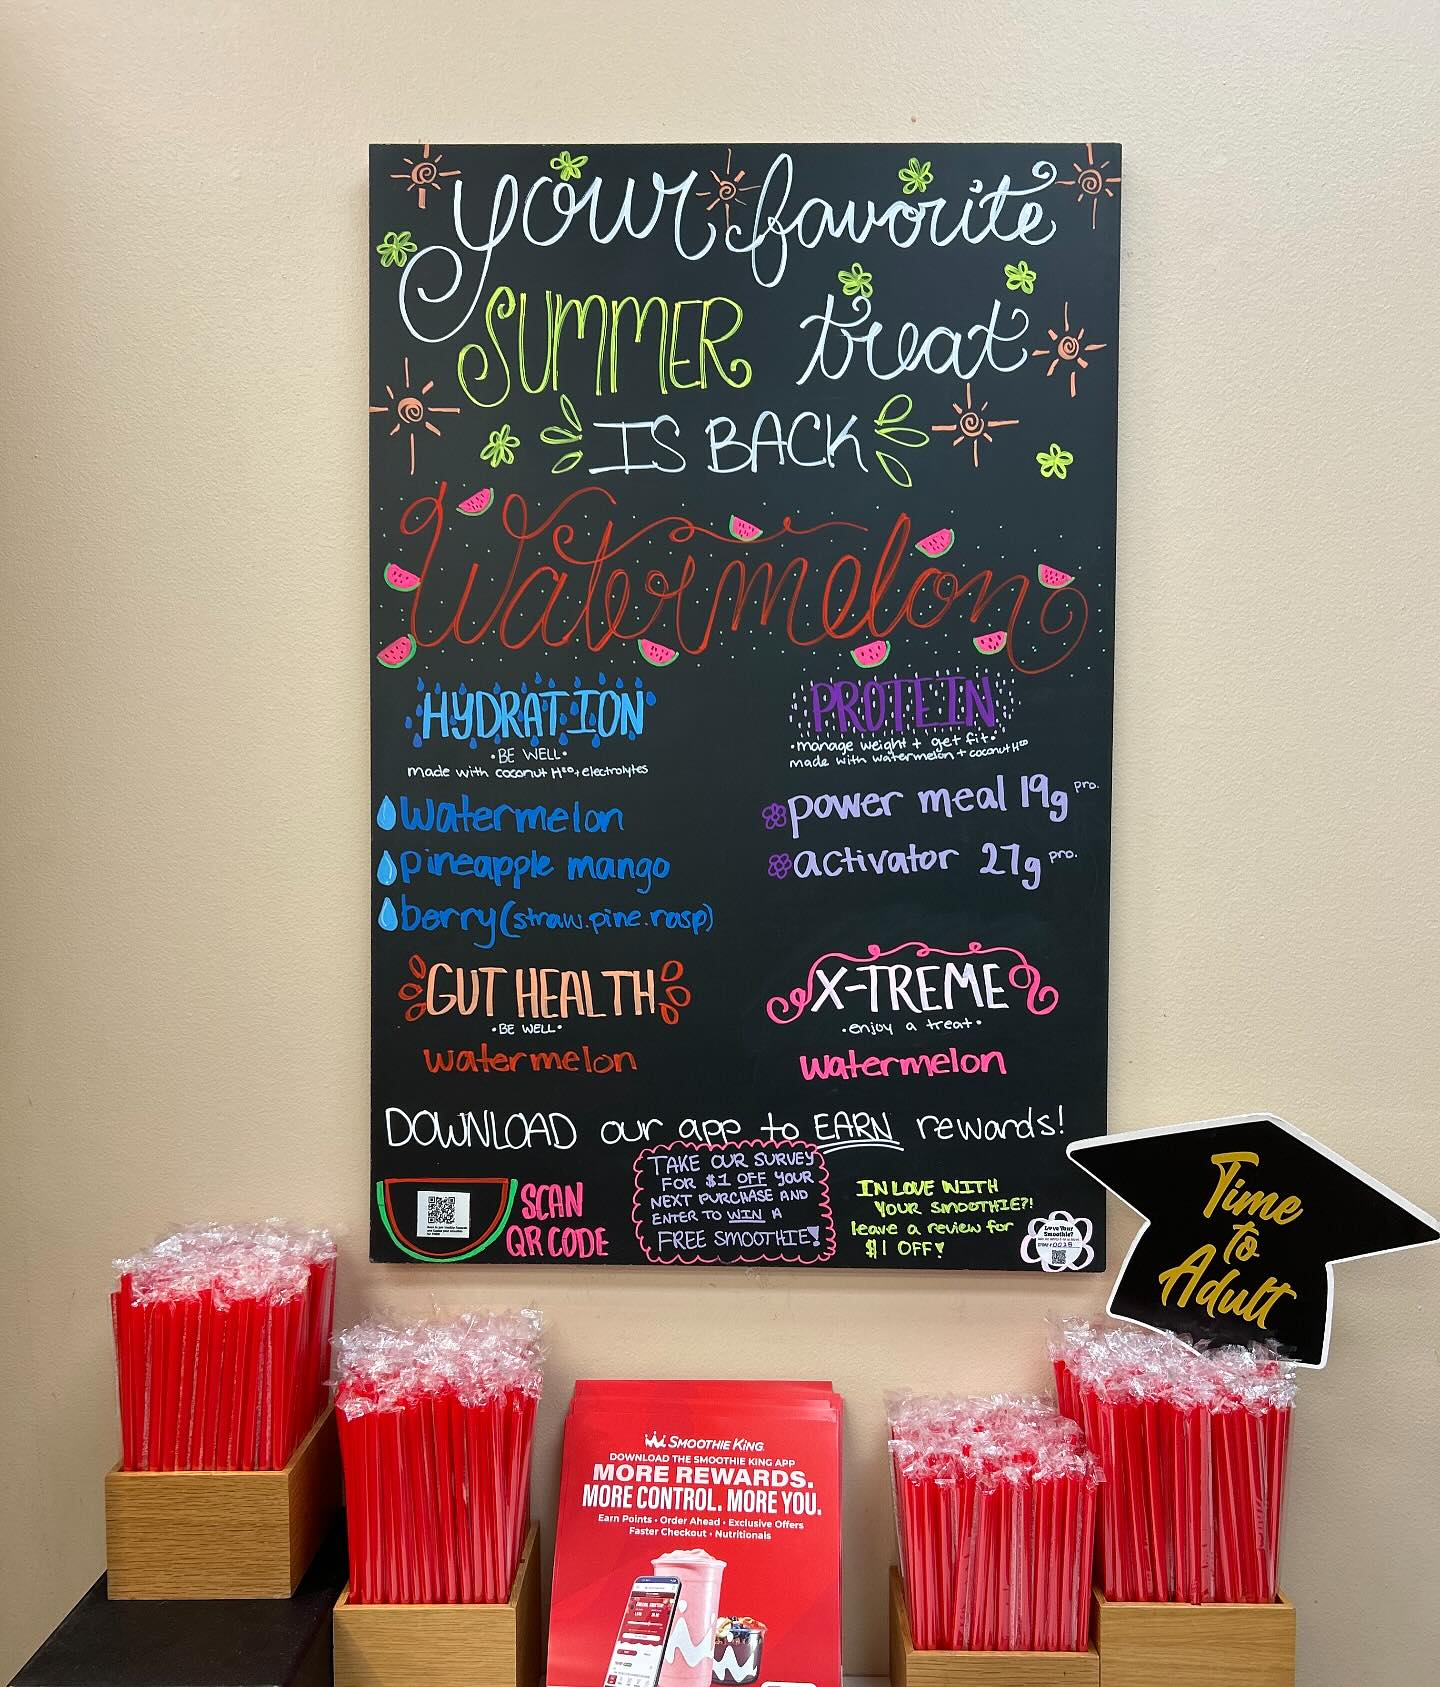 your favorite
SUMMER treat
IS BACK
Watermelon
HYDRATION
•BE WELL•
made with coconut H²⁰+electrolytes
watermelon
pineapple mango
berry(straw.pine.rasp)
PROTEIN
•manage weight + get fit•
made with watermelon + coconut H²⁰
power meal 19g pro.
activator 27g pro.
GUT HEALTH
•BE WELL•
watermelon
X-TREME
•enjoy a treat•
watermelon
DOWNLOAD our app to EARN rewards!
SCAN
QR CODE
TAKE OUR SURVEY
FOR $1 OFF YOUR
NEXT PURCHASE AND
ENTER TO WIN A
FREE SMOOTHIE!
IN LOVE WITH
YOUR SMOOTHIE?!
leave a review for
$1 OFF!
Love Your
Smoothie?
Time
to
Adult
SMOOTHIE KING
DOWNLOAD THE SMOOTHIE KING APP
MORE REWARDS.
MORE CONTROL. MORE YOU.
Earn Points • Order Ahead • Exclusive Offers
Faster Checkout • Nutritionals